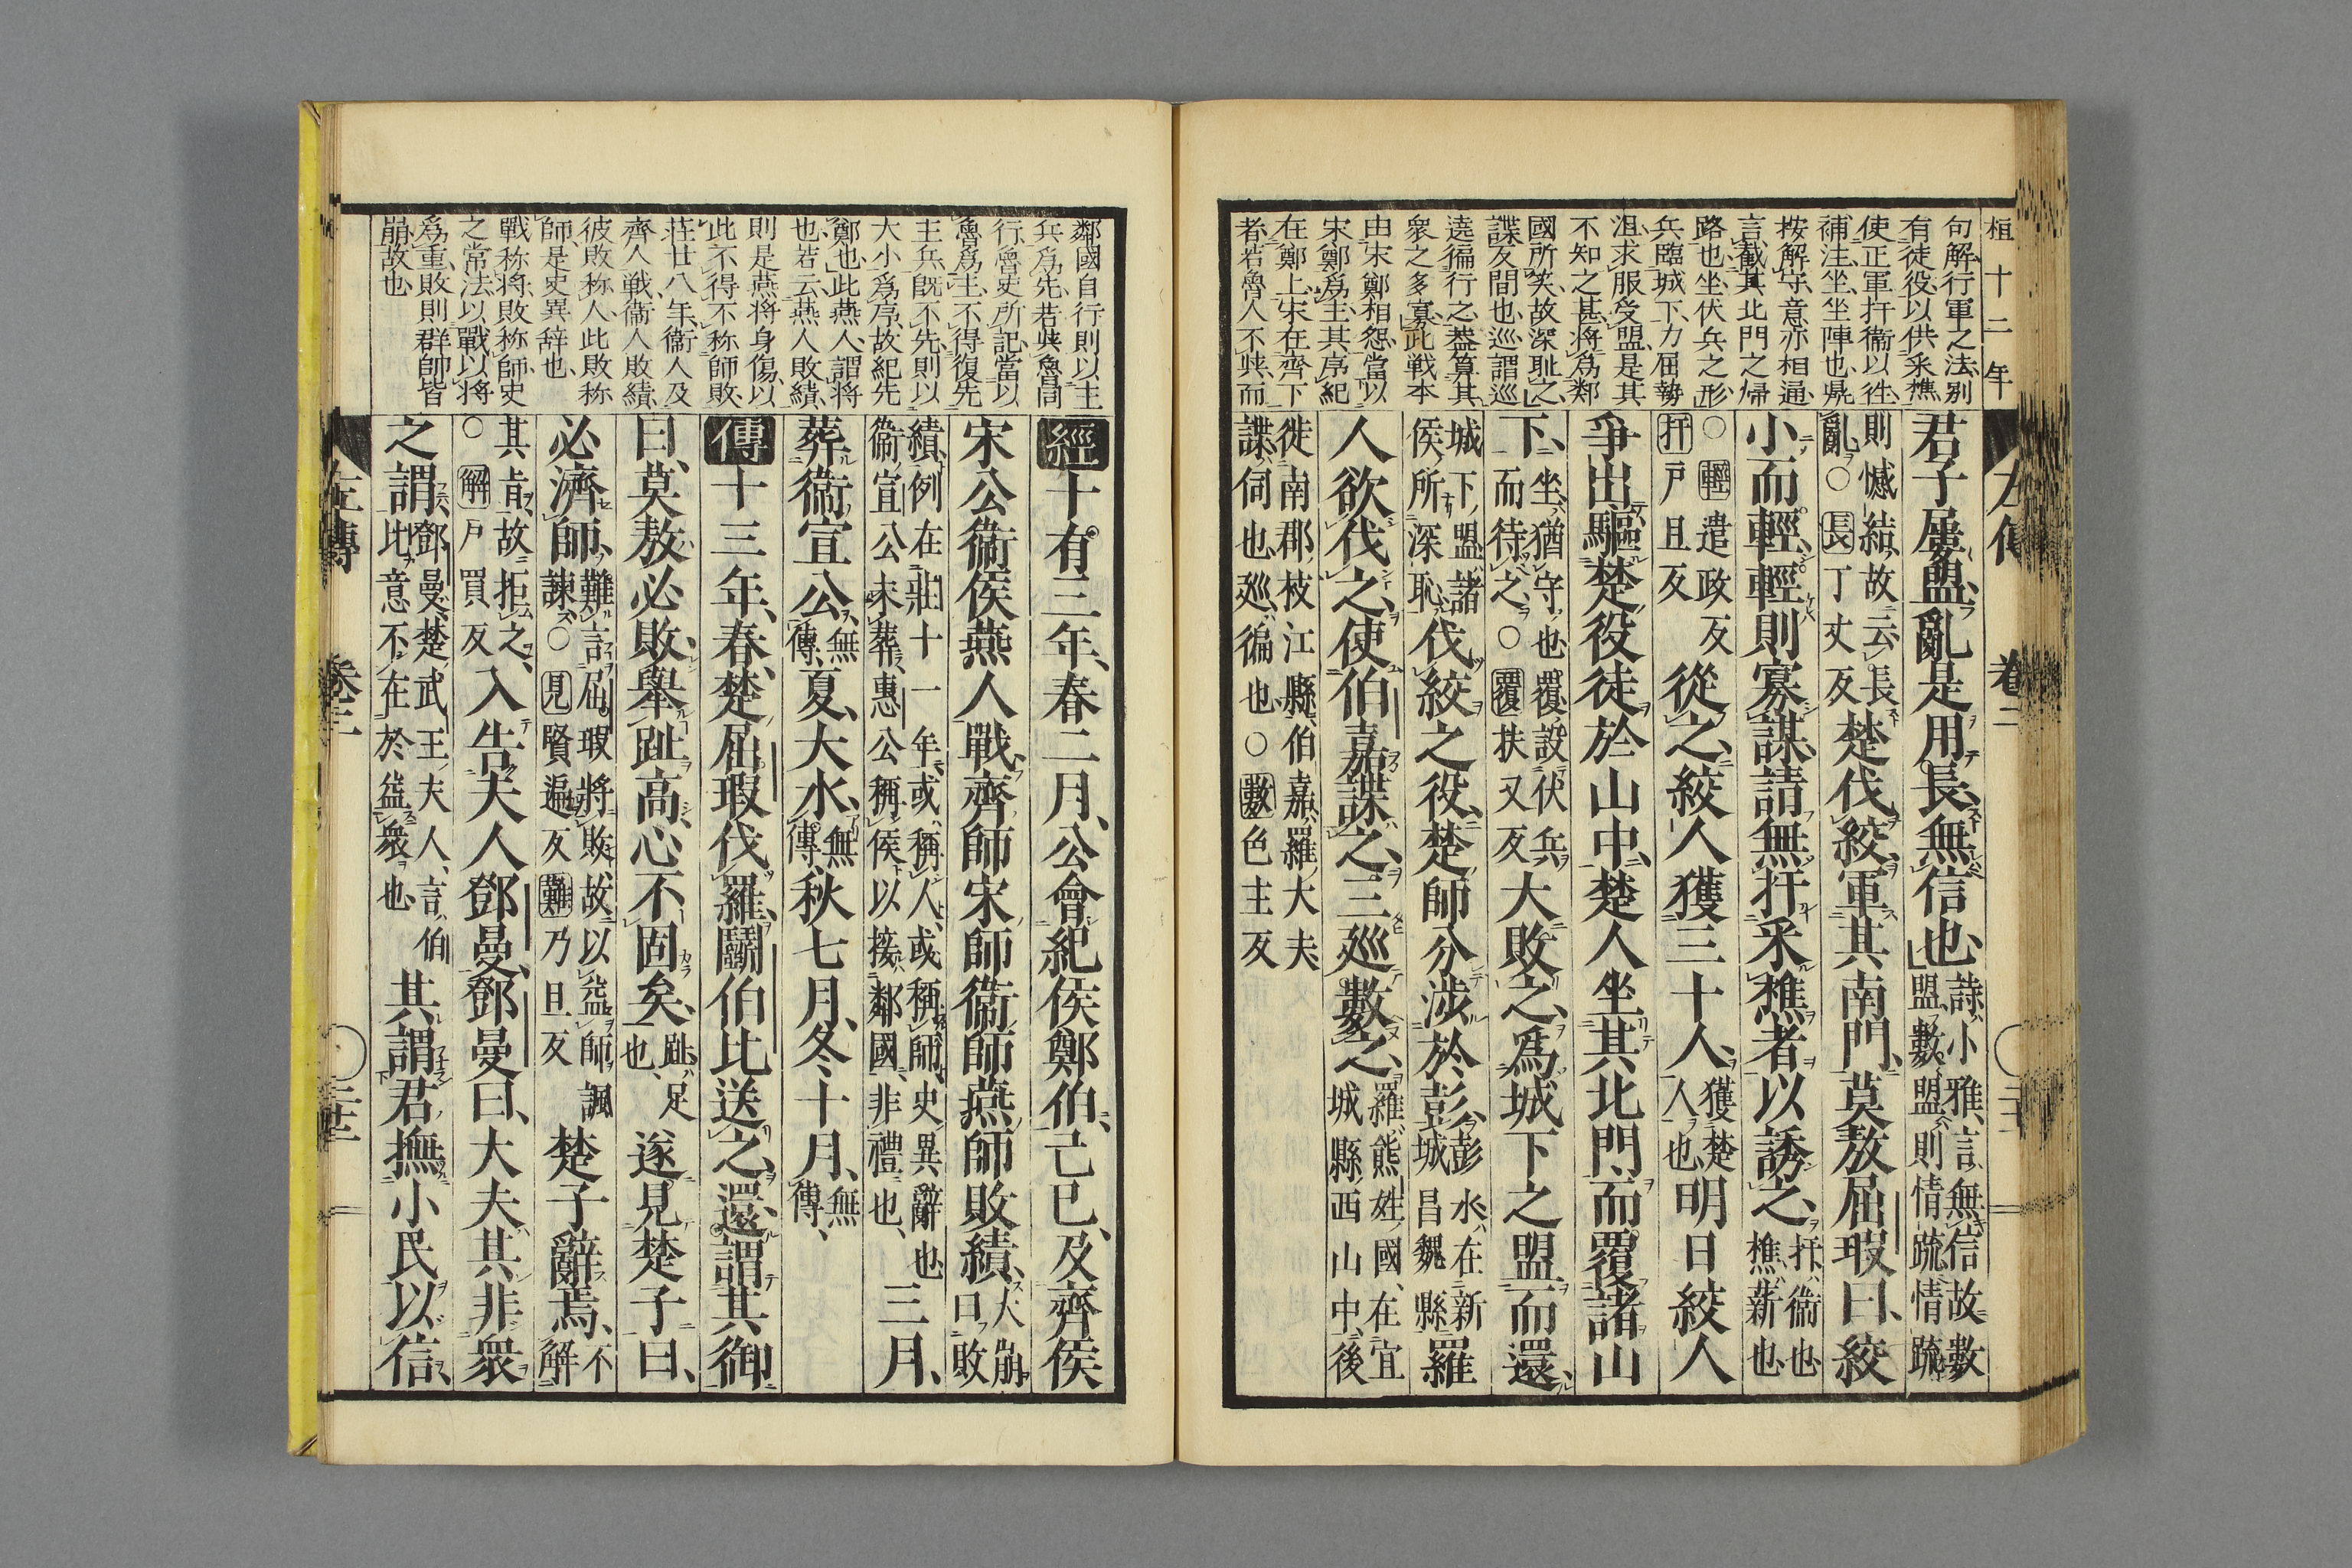 桓十二年
句解、行軍之法、別
有徒役、以供采樵
使正軍扞衞以往
補注、坐、坐陣也、鳧
按解、守、意亦相通
言截其北門之歸
路也、坐、伏兵之形
兵臨城下、力屈勢
沮、求服受盟、是其
不知之甚、將爲鄰
國所笑、故深耻之
諜反間也、巡謂巡
遶徧行之、葢算其
衆之多寡、此戰本
由宋鄭相怨、當以
宋鄭爲主、其序紀
在鄭上、宋在齊下
者、若魯人不與、而
君子屢盟、亂是用長、無信也、詩小雅、言無信故數
盟、數盟則情疏、情疏
則憾結、故云長
亂○長丁丈反楚伐絞、軍其南門、莫敖屈瑕曰、絞
小而輕、輕則寡謀、請無扞采樵者以誘之、扞、衞也
樵、薪也
○輕遣政反
扞戸旦反從之、絞人獲三十人、獲楚
人也、明日絞人
爭出、驅楚役徒於山中、楚人坐其北門、而覆諸山
下、坐、猶守也、覆、設伏兵
而待之、○覆扶又反大敗之、爲城下之盟而還、
城下盟、諸
侯所深恥、伐絞之役、楚師分涉於彭、彭水、在新
城昌魏縣羅
人欲伐之、使伯嘉諜之、三巡數之、羅熊姓國、在宜
城縣西山中、後
徙南郡枝江縣、伯嘉、羅大夫
諜、伺也、巡、徧也○數色主反
左傳 卷二
鄰國自行、則以主
兵爲先、若與魯同
行、魯史所記、當以
魯爲主、不得復先
主兵、旣不先、則以
大小爲序、故紀先
鄭也、此燕人、謂將
也、若云燕人敗績
則是燕將身傷、以
此不得不称師敗
莊廿八年、衞人及
齊人戰、衞人敗績
彼敗称人、此敗称
師、是史異辞也
戰称將、敗称師、史
之常法、以戰以將
爲重、敗則群師皆
崩故也
經十有三年、春二月、公會紀侯鄭伯、己巳、及齊侯
宋公衞侯燕人戰、齊師宋師衞師燕師敗績、大崩
曰敗
績、例在莊十一年、或稱人、或稱師、史異辭也
衞宣公未葬、惠公稱侯以接鄰國、非禮也、三月、
葬衞宣公、無
傳、夏、大水、無
傳、秋七月、冬十月、無
傳、
傳十三年、春、楚屈瑕伐羅、鬭伯比送之、還、謂其御
曰、莫敖必敗、舉趾高、心不固矣、趾、足
也、遂見楚子曰、
必濟師、難言屈瑕將敗、故以益師諷
諫、○見賢遍反難乃旦反楚子辭焉、不
解
其旨、故拒之、
○解戸買反入告夫人鄧曼、鄧曼曰、大夫其非衆
之謂、鄧曼、楚武王夫人、言伯
比意不在於益衆也、其謂君撫小民以信、
左傳 卷二